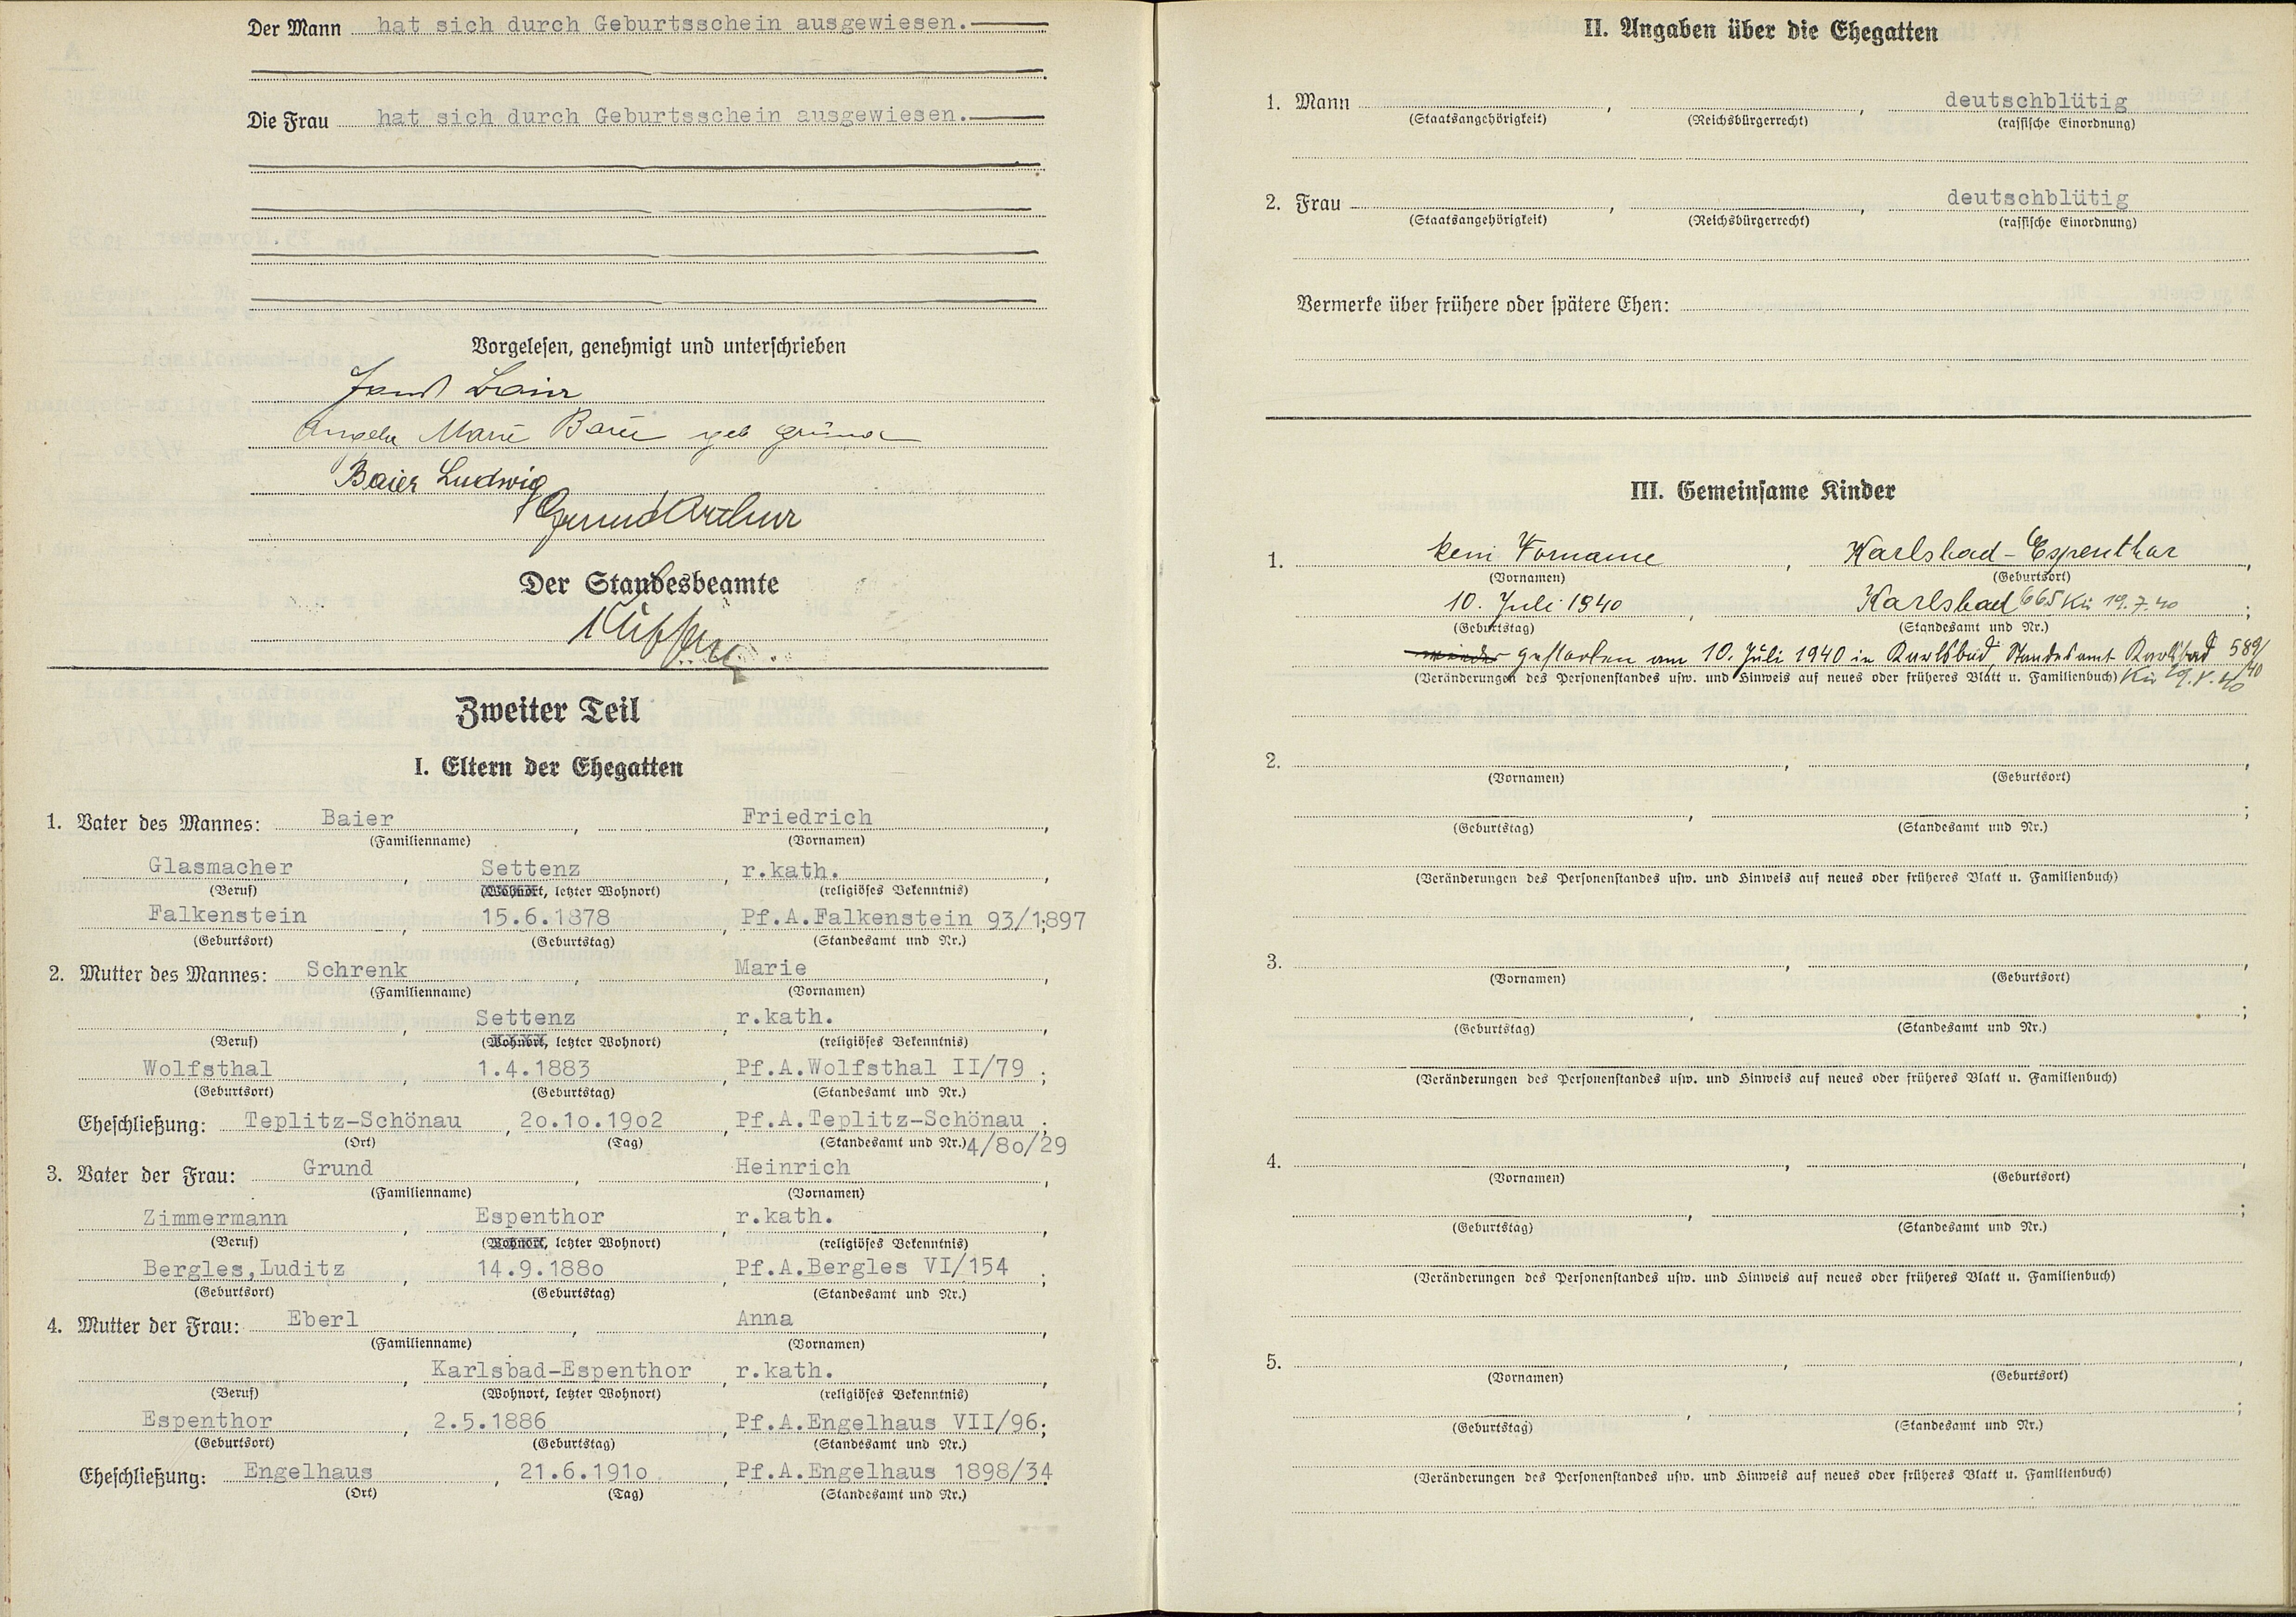 Der Mann hat sich durch Geburtsschein ausgewiesen.
Die Frau hat sich durch Geburtsschein ausgewiesen.
Vorgelesen, genehmigt und unterschrieben
Angela Marie Baier geb Grund
Baier Ludwig
Grund Arthur
Der Standesbeamte
Zweiter Teil
I. Eltern der Ehegatten
1. Vater des Mannes: Baier, Friedrich,
(Familienname) (Vornamen)
Glasmacher, Settenz, r.kath.,
(Beruf) (Wohnort, letzter Wohnort) (religiöses Bekenntnis)
Falkenstein, 15.6.1878, Pf.A.Falkenstein 93/1897;
(Geburtsort) (Geburtstag) (Standesamt und Nr.)
2. Mutter des Mannes: Schrenk, Marie,
(Familienname) (Vornamen)
, Settenz, r.kath.,
(Beruf) (Wohnort, letzter Wohnort) (religiöses Bekenntnis)
Wolfsthal, 1.4.1883, Pf.A.Wolfsthal II/79;
(Geburtsort) (Geburtstag) (Standesamt und Nr.)
Eheschließung: Teplitz-Schönau, 2o.1o.19o2, Pf.A.Teplitz-Schönau;
(Ort) (Tag) (Standesamt und Nr.) 4/8o/29
3. Vater der Frau: Grund, Heinrich,
(Familienname) (Vornamen)
Zimmermann, Espenthor, r.kath.,
(Beruf) (Wohnort, letzter Wohnort) (religiöses Bekenntnis)
Bergles,Luditz, 14.9.188o, Pf.A.Bergles VI/154;
(Geburtsort) (Geburtstag) (Standesamt und Nr.)
4. Mutter der Frau: Eberl, Anna,
(Familienname) (Vornamen)
, Karlsbad-Espenthor, r.kath.,
(Beruf) (Wohnort, letzter Wohnort) (religiöses Bekenntnis)
Espenthor, 2.5.1886, Pf.A.Engelhaus VII/96;
(Geburtsort) (Geburtstag) (Standesamt und Nr.)
Eheschließung: Engelhaus, 21.6.191o, Pf.A.Engelhaus 1898/34.
(Ort) (Tag) (Standesamt und Nr.)
II. Angaben über die Ehegatten
1. Mann , , deutschblütig
(Staatsangehörigkeit) (Reichsbürgerrecht) (rassische Einordnung)
2. Frau , , deutschblütig
(Staatsangehörigkeit) (Reichsbürgerrecht) (rassische Einordnung)
Vermerke über frühere oder spätere Ehen:
III. Gemeinsame Kinder
1. kein Vorname, Karlsbad-Espenthor,
(Vornamen) (Geburtsort)
10. Juli 1940, Karlsbad 665 Kü 19.7.40;
(Geburtstag) (Standesamt und Nr.)
wieder gestorben am 10. Juli 1940 in Karlsbad, Standesamt Karlsbad 589/40
(Veränderungen des Personenstandes usw. und Hinweis auf neues oder früheres Blatt u. Familienbuch)
2. , ,
(Vornamen) (Geburtsort)
, ;
(Geburtstag) (Standesamt und Nr.)
(Veränderungen des Personenstandes usw. und Hinweis auf neues oder früheres Blatt u. Familienbuch)
3. , ,
(Vornamen) (Geburtsort)
, ;
(Geburtstag) (Standesamt und Nr.)
(Veränderungen des Personenstandes usw. und Hinweis auf neues oder früheres Blatt u. Familienbuch)
4. , ,
(Vornamen) (Geburtsort)
, ;
(Geburtstag) (Standesamt und Nr.)
(Veränderungen des Personenstandes usw. und Hinweis auf neues oder früheres Blatt u. Familienbuch)
5. , ,
(Vornamen) (Geburtsort)
, ;
(Geburtstag) (Standesamt und Nr.)
(Veränderungen des Personenstandes usw. und Hinweis auf neues oder früheres Blatt u. Familienbuch)